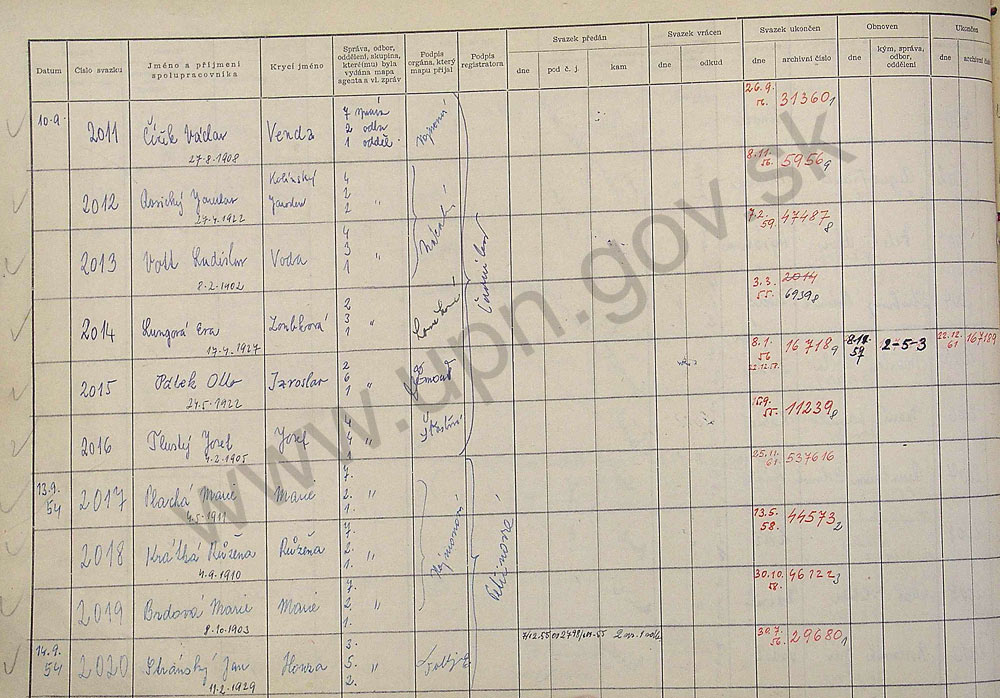 Datum
Číslo svazku
Jméno a příjmení spolupracovníka
Krycí jméno
Správa, odbor, oddělení, skupina, které(mu) byla vydána mapa agenta a vl. zpráv
Podpis orgána, který mapu přijal
Podpis registratora
Svazek předán
dne
pod č. j.
kam
Svazek vrácen
dne
odkud
Svazek ukončen
dne
archivní číslo
Obnoven
dne
kým, správa, odbor, oddělení
Ukončen
dne
archivní číslo
10.9. 2011 Čížik Václav 27.8.1908 Venda 7 správa 2 odbor 1 odděl. 26.9. 56. 31360/1
2012 Jaroslav 27.4.1922 Kolínský Jaroslav 4 2 2 " 8.11. 56. 5956/9
2013 Vott Ladislav 8.2.1902 Voda 4 3 1 " 7.2. 59. 47487/8
2014 Lungová Eva 17.4.1927 Zoubková 2 3 1 " 3.3. 55. 2014 6939/8
2015 Pátek Otto 24.5.1922 Jaroslav 2 6 1 " 8.1. 56 22.12.59. 16718/9 8.12. 59 2-5-3 22.12. 61 167189
2016 Tlustý Josef 4.2.1905 Josef 4 4 " 15.9. 55. 11239/8
13.9. 54 2017 Plachá Marie 4.5.1911 Marie 7. 2. 1. " 25.11. 61. 537616
2018 Krátká Růžena 4.9.1910 Růžena 7. 2. 1. " 13.5. 58. 44573/2
2019 Brdová Marie 8.10.1903 Marie 7. 2. 1. " 30.10. 58. 46722/3
14.9. 54 2020 Stránský Jan 11.2.1929 Honza 3. 5. 2. " 30.7. 56. 29680/1
www.upn.gov.sk